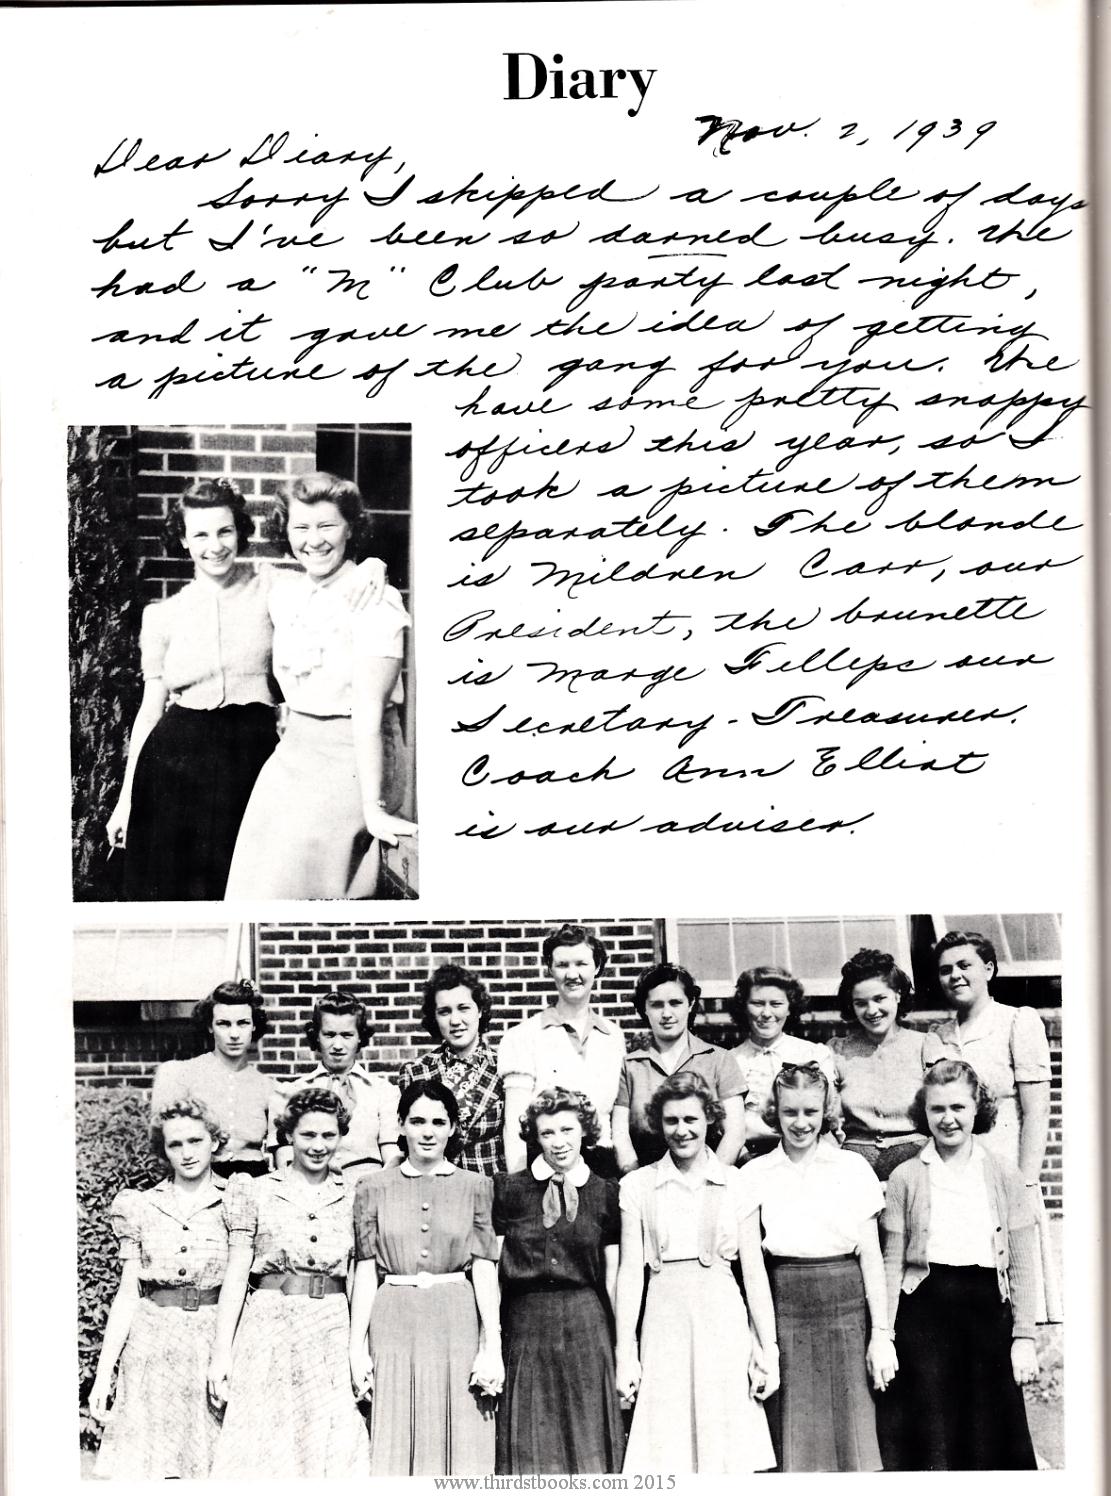 Diary
Nov. 2, 1939
Dear Diary,
Sorry I skipped a couple of days
but I've been so darned busy. We
had a "M" Club party last night,
and it gave me the idea of getting
a picture of the gang for you. We
have some pretty snappy
officers this year, so I
took a picture of them
separately. The blonde
is Mildren Carr, our
President, the brunette
is Marge Fillips our
Secretary-Treasurer.
Coach Ann Elliot
is our adviser.
www.thirdstbooks.com 2015